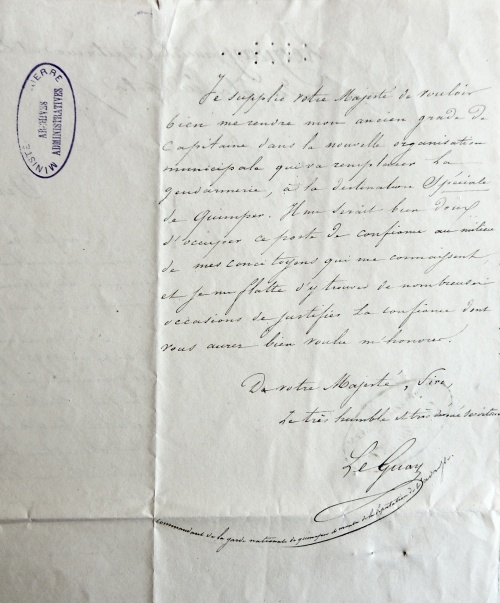 MINISTÈRE GUERRE
ARCHIVES
ADMINISTRATIVES
Je supplie votre Majesté de vouloir
bien me rendre mon ancien grade de
Capitaine dans la nouvelle organisation
municipale qui va remplacer la
gendarmerie, à la destination Spéciale
de Quimper. Il me serait bien doux
d'occuper ce poste de confiance au milieu
de mes concitoyens qui me connaissent
et je me flatte d'y trouver de nombreuses
occasions de justifier la confiance dont
vous aurez bien voulu m'honorer.
De votre Majesté, Sire,
Le très humble et très dévoué serviteur
Le Guay
Commandant de la garde nationale de quimper et membre de la députation de